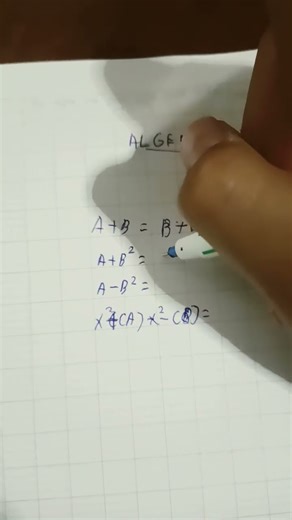 ALGE
A+B = B+
A+B² =
A-B² =
X²+(A) x²-(B) =